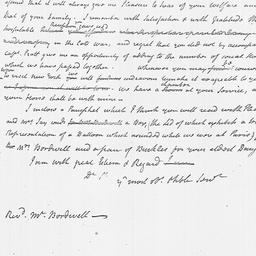 afford that it will always give me Pleasure to hear of your Welfare and
that of your family. I remember with Satisfaction & with Gratitude the
hospitable
in the last war, and regret that you did not by accompanying
Capt. give me an opportunity of adding to the number of social Hours
which we have passed together. whenever you may
to visit New York you will find us endeavour to make it agreeable to you
We have a Room at your Service, &
your Horse shall be with mine.
I inclose a Pamphlet which I think you will read with Pleasure
and Mrs Jay sends a Box, (the Lid of which exhibits a
Representation of a Balloon which ascended while we were at Paris),
Mrs. Bordwell and a pair of Buckles for your eldest Daughter
I am with great Esteem & Regard
Dr. Sr.
yr. most obt. & hble Servt.
Revd. Mr. Bordwell